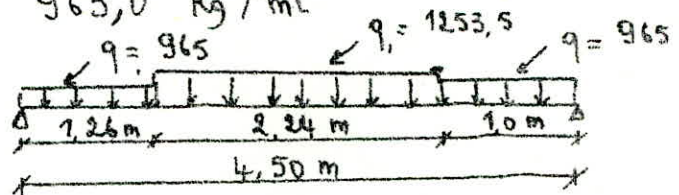 965,0 Kg / ml
q = 965 q, = 1253,5 q = 965
1,26 m 2,24 m 1,0 m
4,50 m